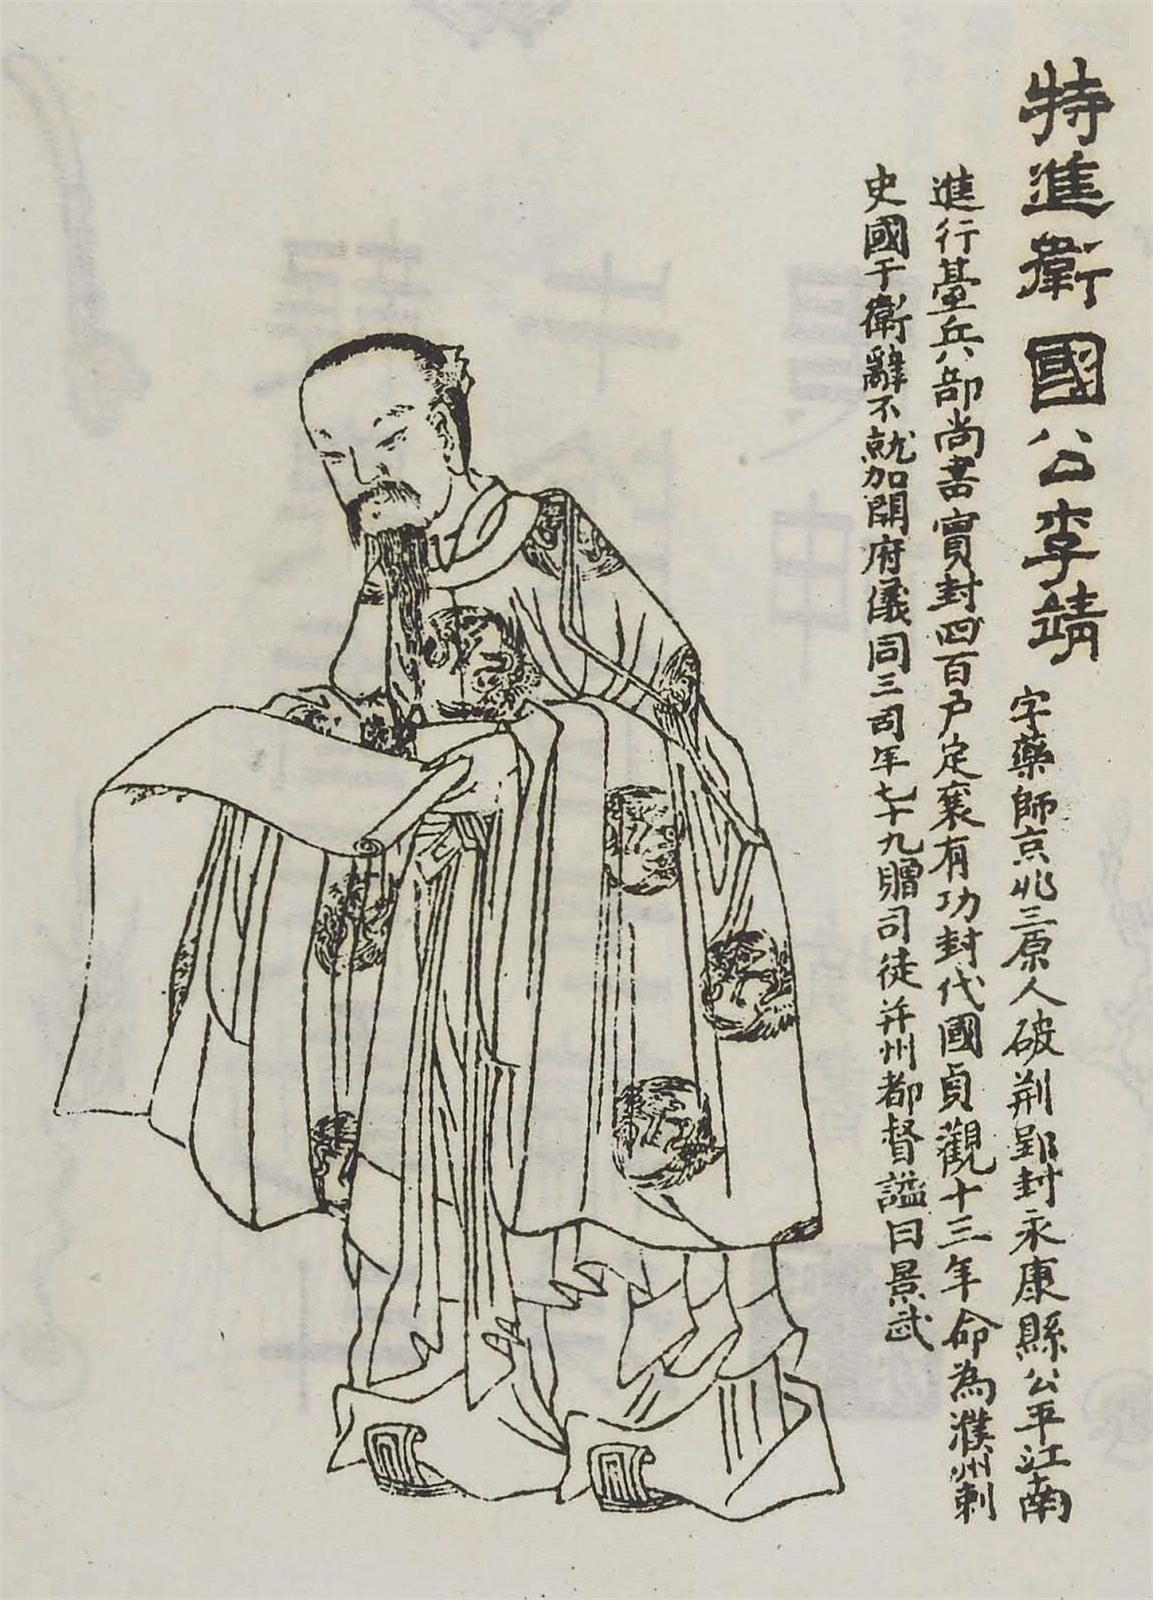 特進衛國公李靖 字藥師京兆三原人破荆郢封永康縣公平江南
進行臺兵部尚書實封四百户定襄有功封代國貞觀十三年命為濮州刺
史國于衛辭不就加開府儀同三司年七十九贈司徒并州都督謚曰景武